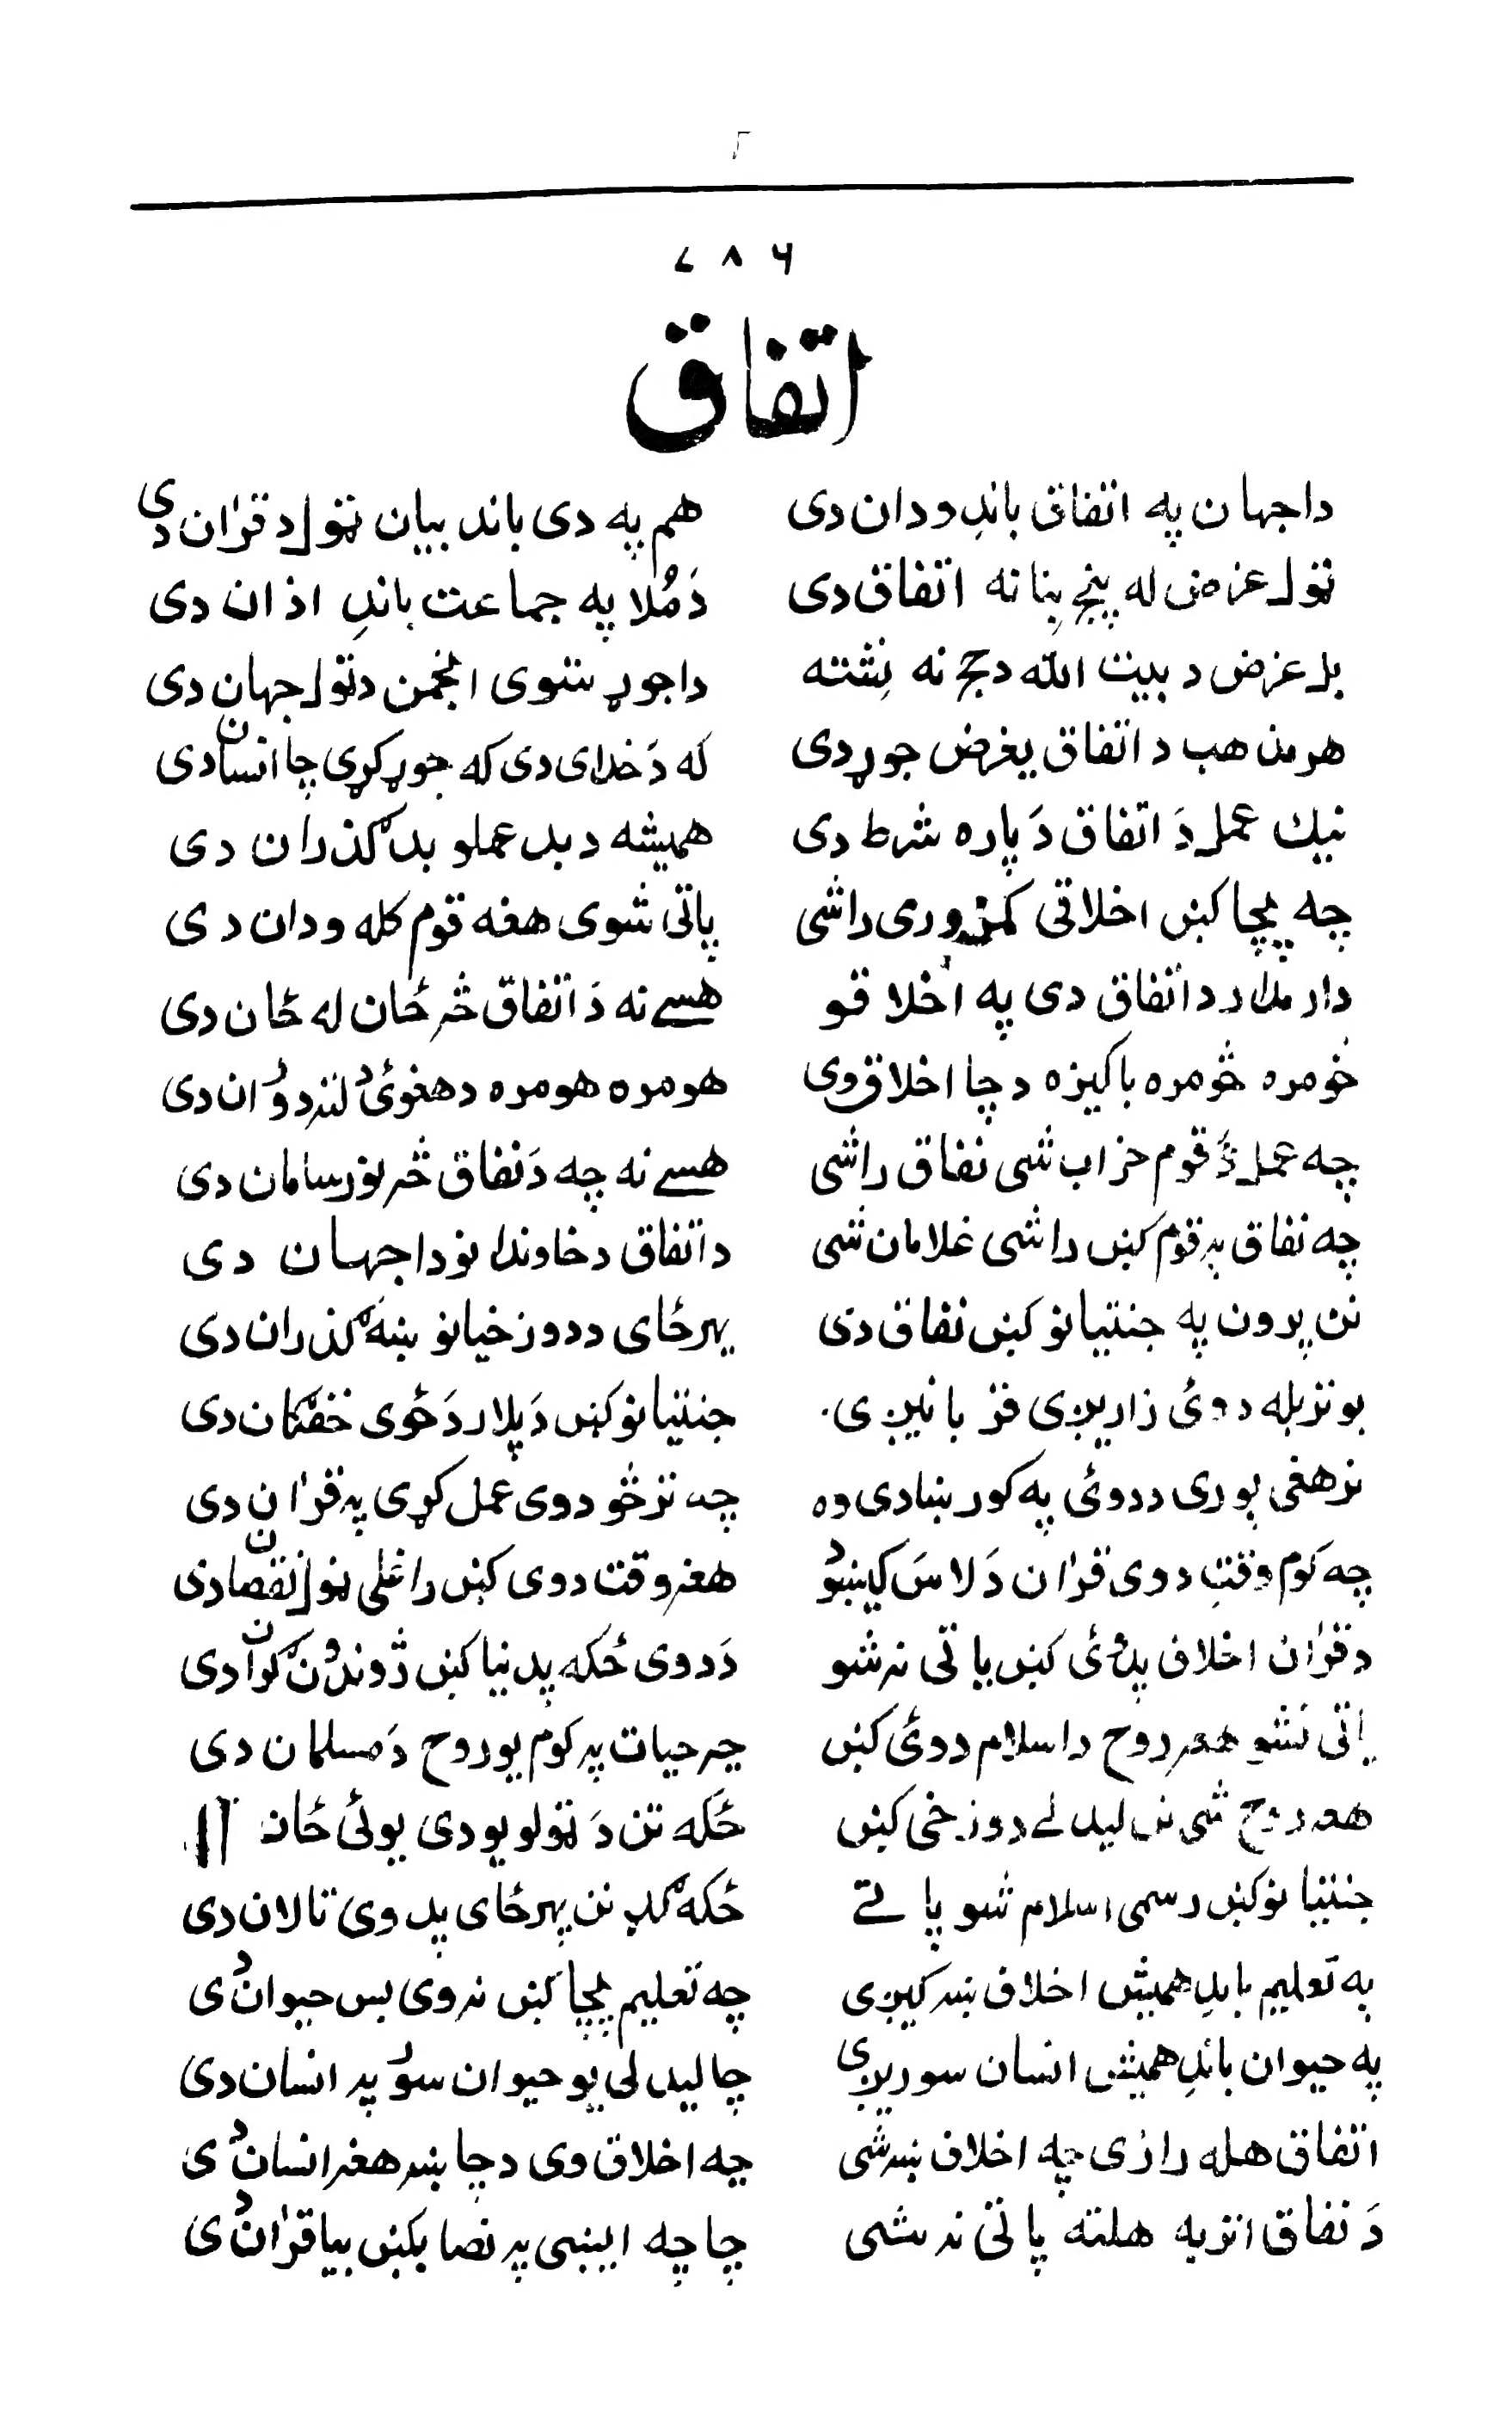 ۲
۷۸۶
اتفاق
داجهان په اتفاق باندِ ودان دی هم په دی باند بیان ټول د قرٰان دی
ټول غرض له پنج بنا نه اتفاق دی دَ مُلا په جماعت باندِ اذان دی
بل غرض د بیت الله د حج نه نِشته داجوړ شوی انجمن د ټول جهان دی
هر مذهب د اتفاق په غرض جوړ دی که دَ خدای دی که جوړ کړی چا انسان دی
نیک عمل دَ اتفاق دَ پاره شرط دی همیشه د بد عملو بد ګذران دی
چه په چا کښ اخلاقی کمزوری راشی پاتی شوی هغه قوم کله ودان دی
دار مدار د اتفاق دی په اخلاقو هسے نه دَ اتفاق څه ځان له ځان دی
څومره څومره پاکیزه د چا اخلاق وی هومره هومره د هغوئ
چه عمل دَ قوم خراب شی نفاق راشی هسے نه چه دَ نفاق څه نور سامان دی
چه نفاق په قوم کښ راشی غلامان شی د اتفاق د خاوندانو داجهان دی
نن پرون په جنتیانو کښ نفاق دی بهر ځای د دوزخیانو ښه ګذران دی
یو تر بله دوئ زاریږی قربانیږی جنتیانو کښ دَ پلار دَ ځوی خفګان دی
تر هغی پوری د دوئ په کور ښادی وه چه تر څو دوی عمل کړی په قرٰان دی
چه کوم وقت دوی قرٰان دَ لاسَ کیښود هغه وقت دوی کښ راغلی ټول نقصان دی
د قرٰان اخلاق په دوئ کښ پاتی نه شو دَ دوی ځکه په دنیا کښ ژوندون ګران دی
پاتی نشو هغه روح د اسلام دوئ کښ چه حیات په کوم یو روح دَ مسلمان دی
هغه روح شی نن لیدلے دوزخی کښ ځکه تن دَ ټولو یو دی یوئی ځان
جنتیانو کښ رسمی اسلام شو پاتے ځکه ګډ نن بهر ځای په دوی تالان دی
په تعلیم باندِ همیش اخلاق ښه کیږی چه تعلیم په چا کښ نه وی بس حیوان دی
په حیوان باندِ همیش انسان سوریږی چا لیدلی یو حیوان سور په انسان دی
اتفاق هله رازی چه اخلاق ښه شی چه اخلاق وی د چا ښه هغه انسان دی
دَ نفاق انزیه هلته پاتی نه شی چا چه ایښی په نصاب کښ بیا قرٰان دی